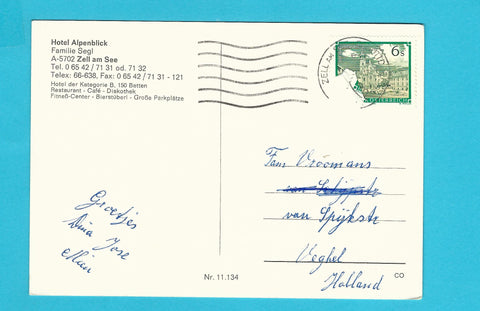 Hotel Alpenblick
Familie Segl
A-5702 Zell am See
Tel. 0 65 42 / 71 31 od. 71 32
Telex: 66-638, Fax: 0 65 42 / 71 31 - 121
Hotel der Kategorie B, 150 Betten
Restaurant - Café - Diskothek
Fitneß-Center - Bierstüberl - Große Parkplätze
6 S
ZELL AM
ÖSTERREICH
Groetjes
Dina Jose
Fam Vroomans
van Spijkstr
Veghel
Holland
Nr. 11.134
CO